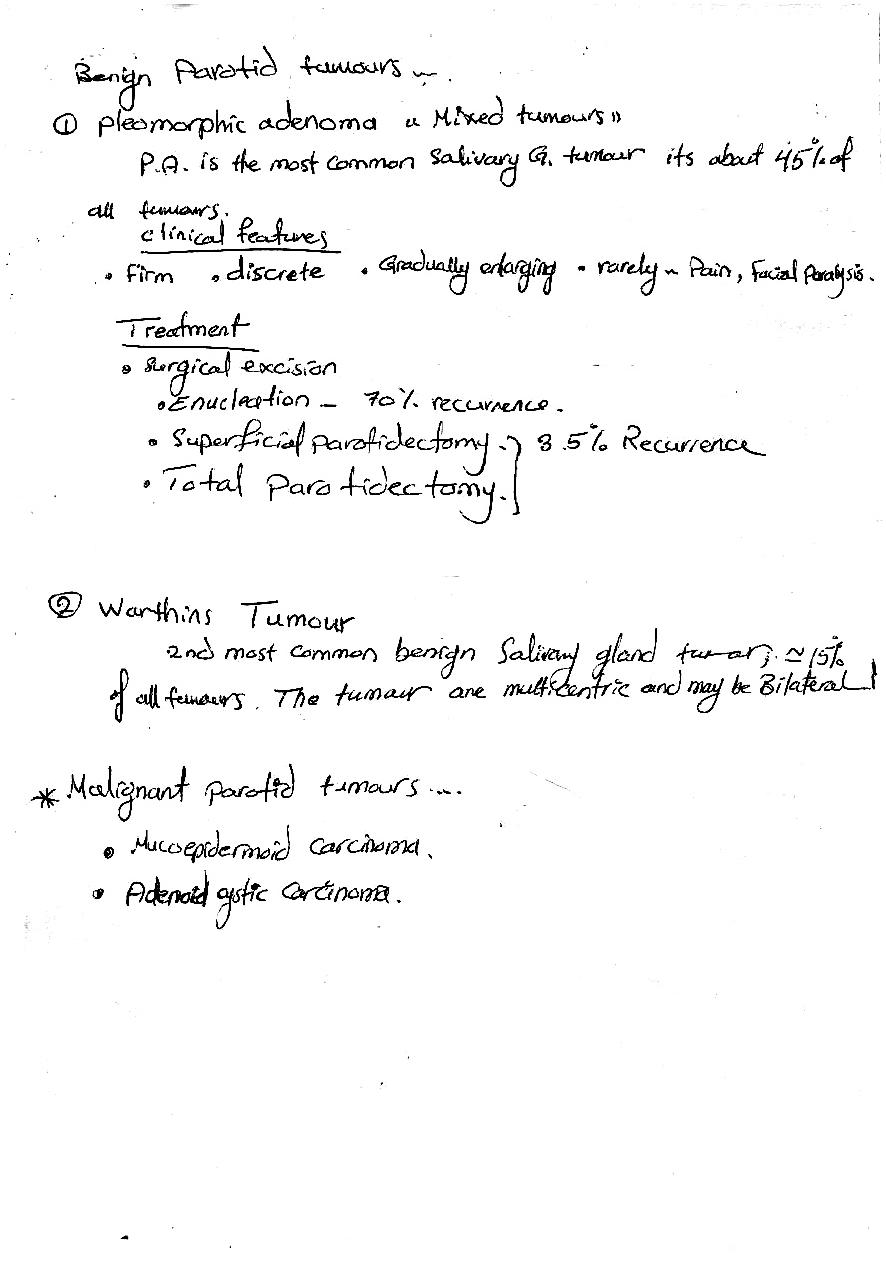 Benign Parotid tumours ....
① Pleomorphic adenoma "Mixed tumours"
P.A. is the most common Salivary G. tumour its about 45% of
all tumours.
clinical features
• Firm • discrete • Gradually enlarging • rarely ~ Pain, Facial Paralysis.
Treatment
• Surgical excision
• Enucleation – 70% recurrence.
• Superficial parotidectomy. } 8.5% Recurrence
• Total Parotidectomy.
② Warthins Tumour
2nd most common benign Salivary gland tumor; ≃ 15%
of all tumours. The tumour are multicentric and may be Bilateral
* Malignant parotid tumours ....
• Mucoepidermoid Carcinoma.
• Adenoid cystic Carcinoma.